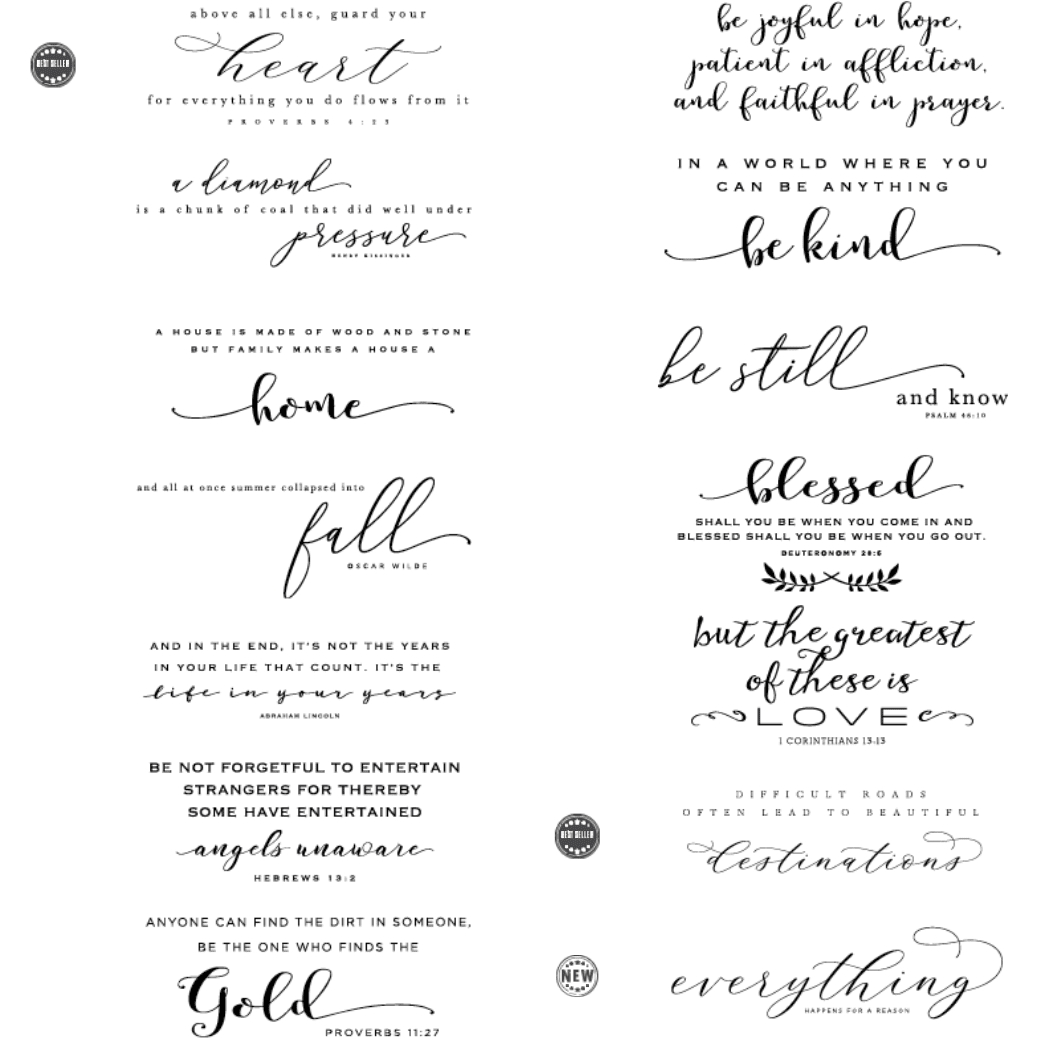 above all else, guard your
BEST SELLER
heart
for everything you do flows from it
PROVERBS 4:23
a diamond
is a chunk of coal that did well under
pressure
HENRY KISSINGER
A HOUSE IS MADE OF WOOD AND STONE
BUT FAMILY MAKES A HOUSE A
home
and all at once summer collapsed into
fall
OSCAR WILDE
AND IN THE END, IT'S NOT THE YEARS
IN YOUR LIFE THAT COUNT. IT'S THE
life in your years
ABRAHAM LINCOLN
BE NOT FORGETFUL TO ENTERTAIN
STRANGERS FOR THEREBY
SOME HAVE ENTERTAINED
angels unaware
HEBREWS 13:2
ANYONE CAN FIND THE DIRT IN SOMEONE,
BE THE ONE WHO FINDS THE
Gold
PROVERBS 11:27
be joyful in hope,
patient in affliction,
and faithful in prayer.
IN A WORLD WHERE YOU
CAN BE ANYTHING
be kind
be still
and know
PSALM 46:10
blessed
SHALL YOU BE WHEN YOU COME IN AND
BLESSED SHALL YOU BE WHEN YOU GO OUT.
DEUTERONOMY 28:6
but the greatest
of these is
LOVE
1 CORINTHIANS 13:13
DIFFICULT ROADS
OFTEN LEAD TO BEAUTIFUL
BEST SELLER
destinations
NEW
everything
HAPPENS FOR A REASON